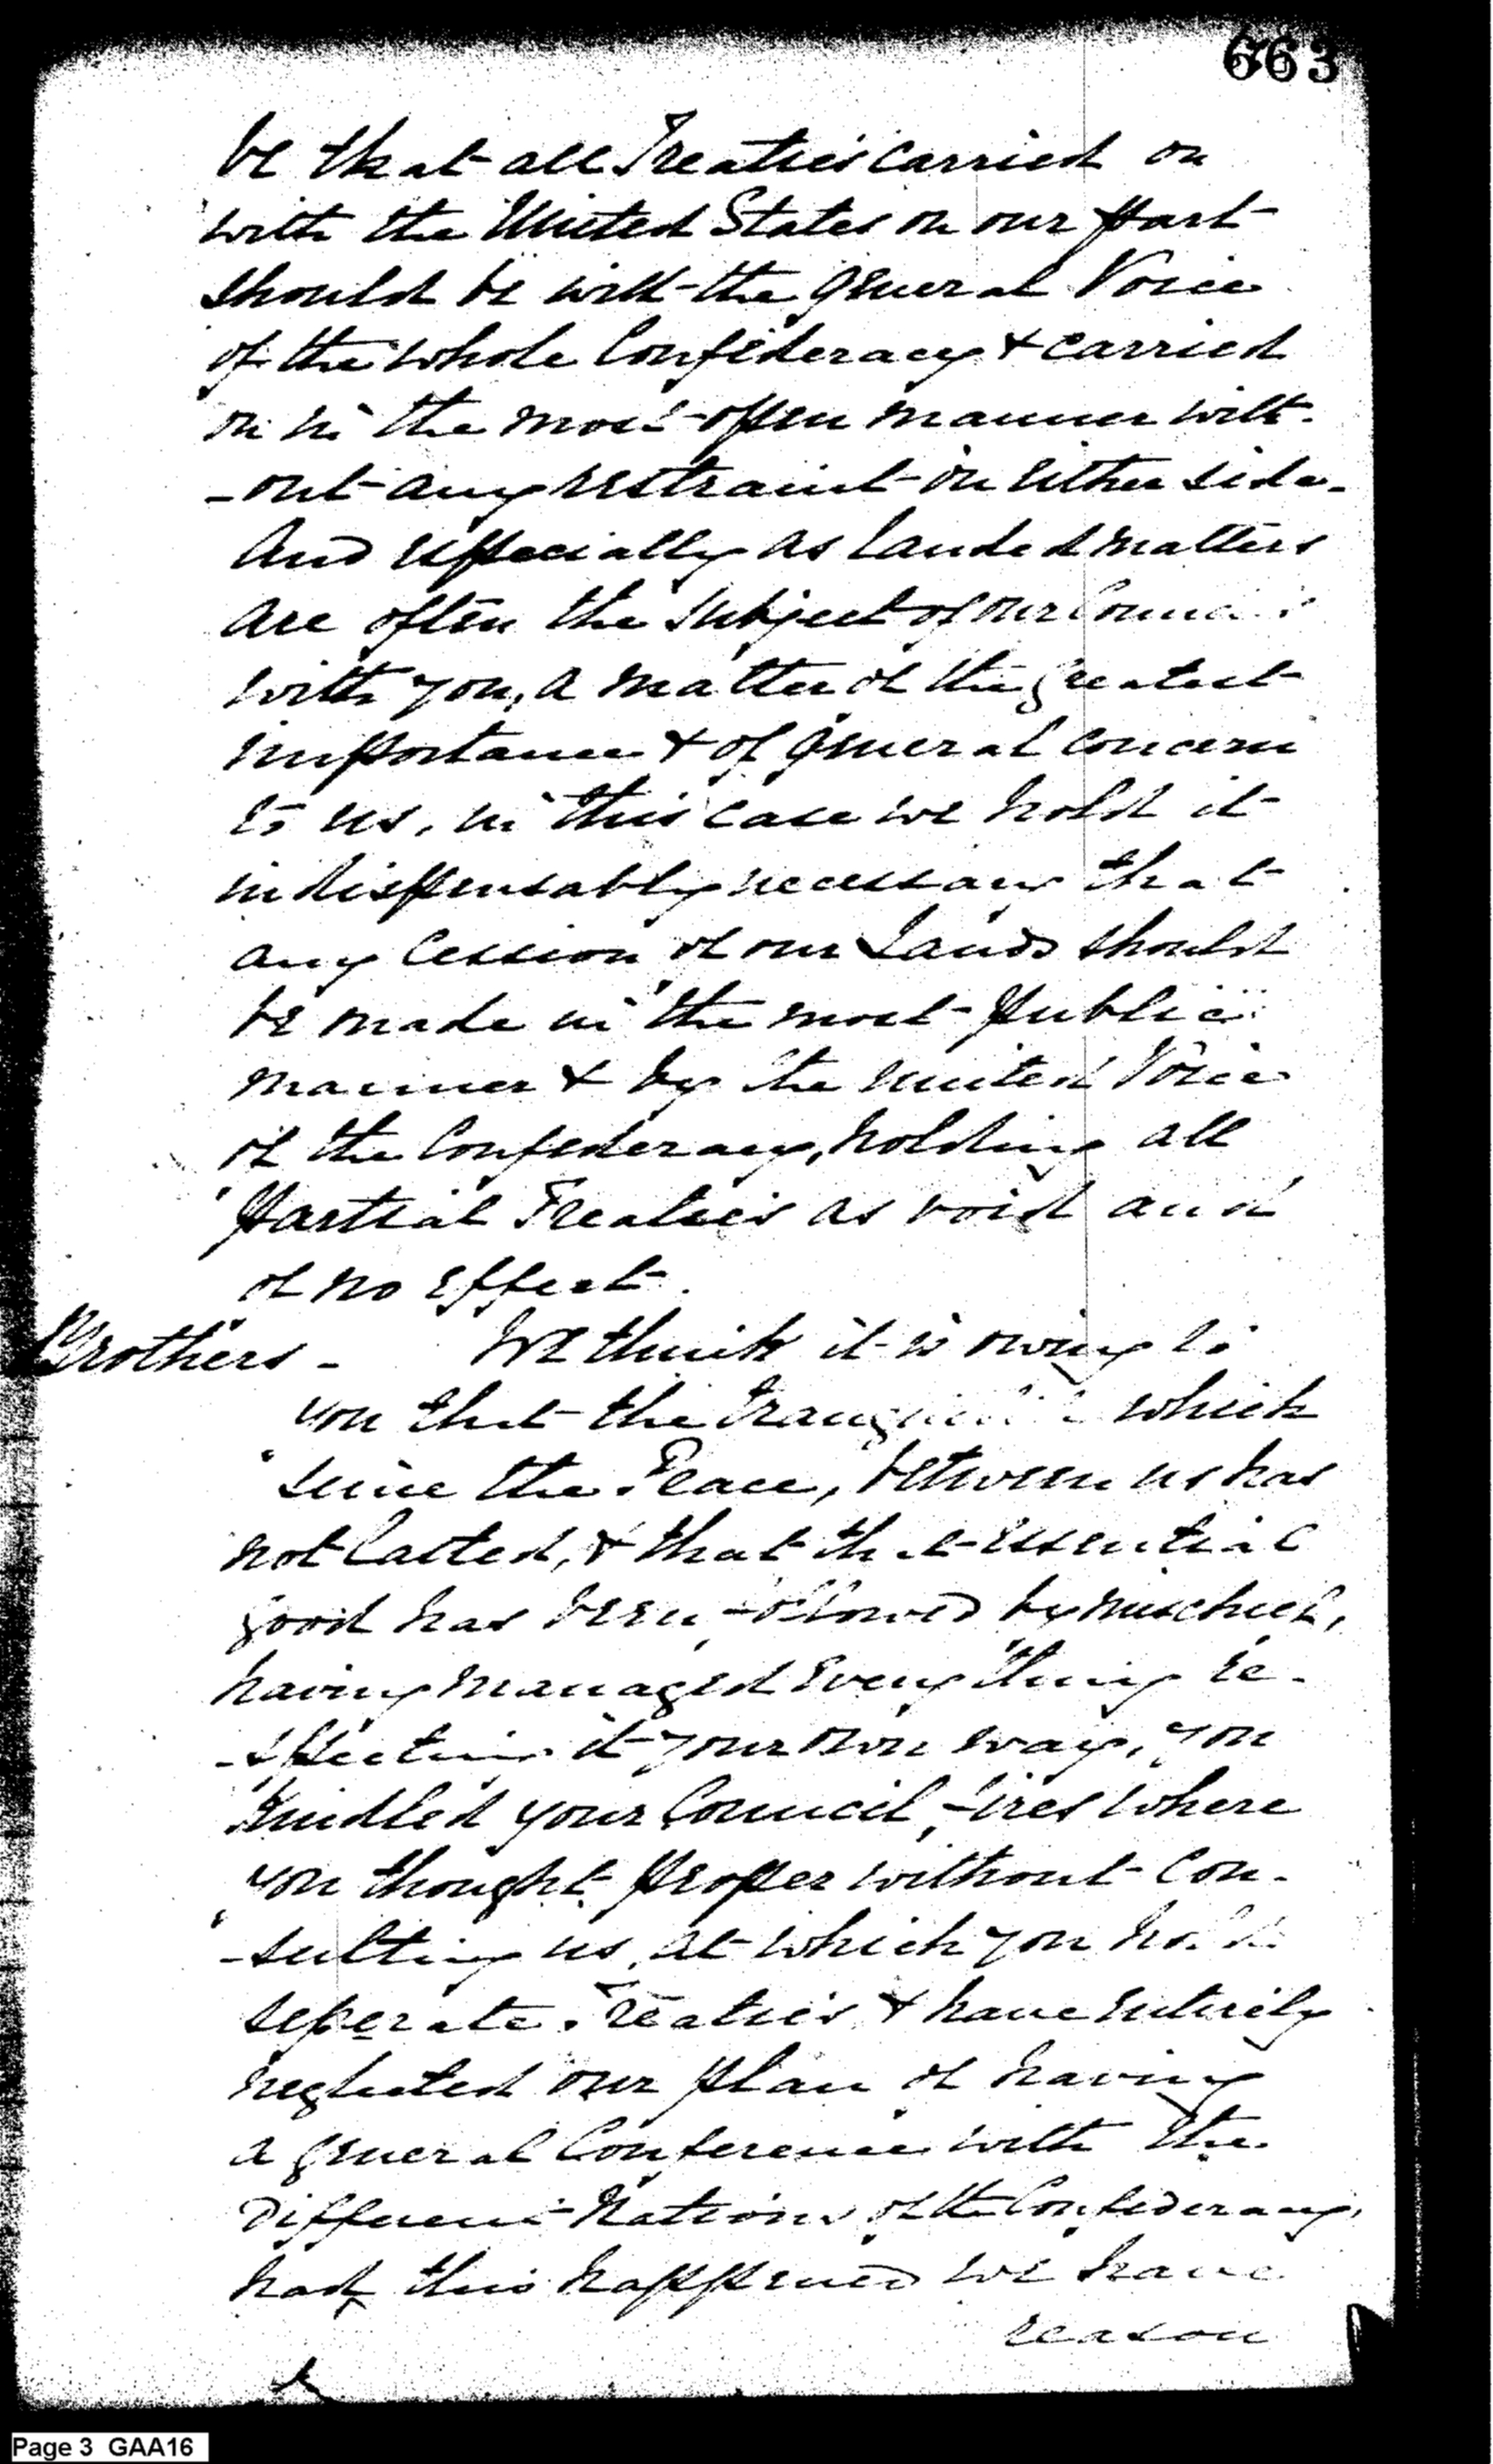 663
be that all Treaties carried on
with the United States on our part
should be with the general Voice
of the whole Confederacy & carried
on in the most open manner with-
-out any restraint on either side.
And especially as landed matters
are often the subject of our
with you, a matter of the greatest
importance & of general concern
to us, in this case we hold it
indispensably necessary that
any Cession of our Lands should
be made in the most public
manner & by the united Voice
of the Confederacy, holding all
partial Treaties as void and
of no effect.
Brothers - We think it is owing to
you that the which
since the Peace, between us has
not lasted, & that that essential
good has been followed by mischief,
having managed every thing re-
-specting it your own way, you
kindled your Council fires where
you thought proper without con-
-sulting us, at which you
seperate Treaties & have entirely
neglected our plan of having
a general Conference with the
Different Nations of the Confederacy,
had this happened we have
reason
Page 3 GAA16